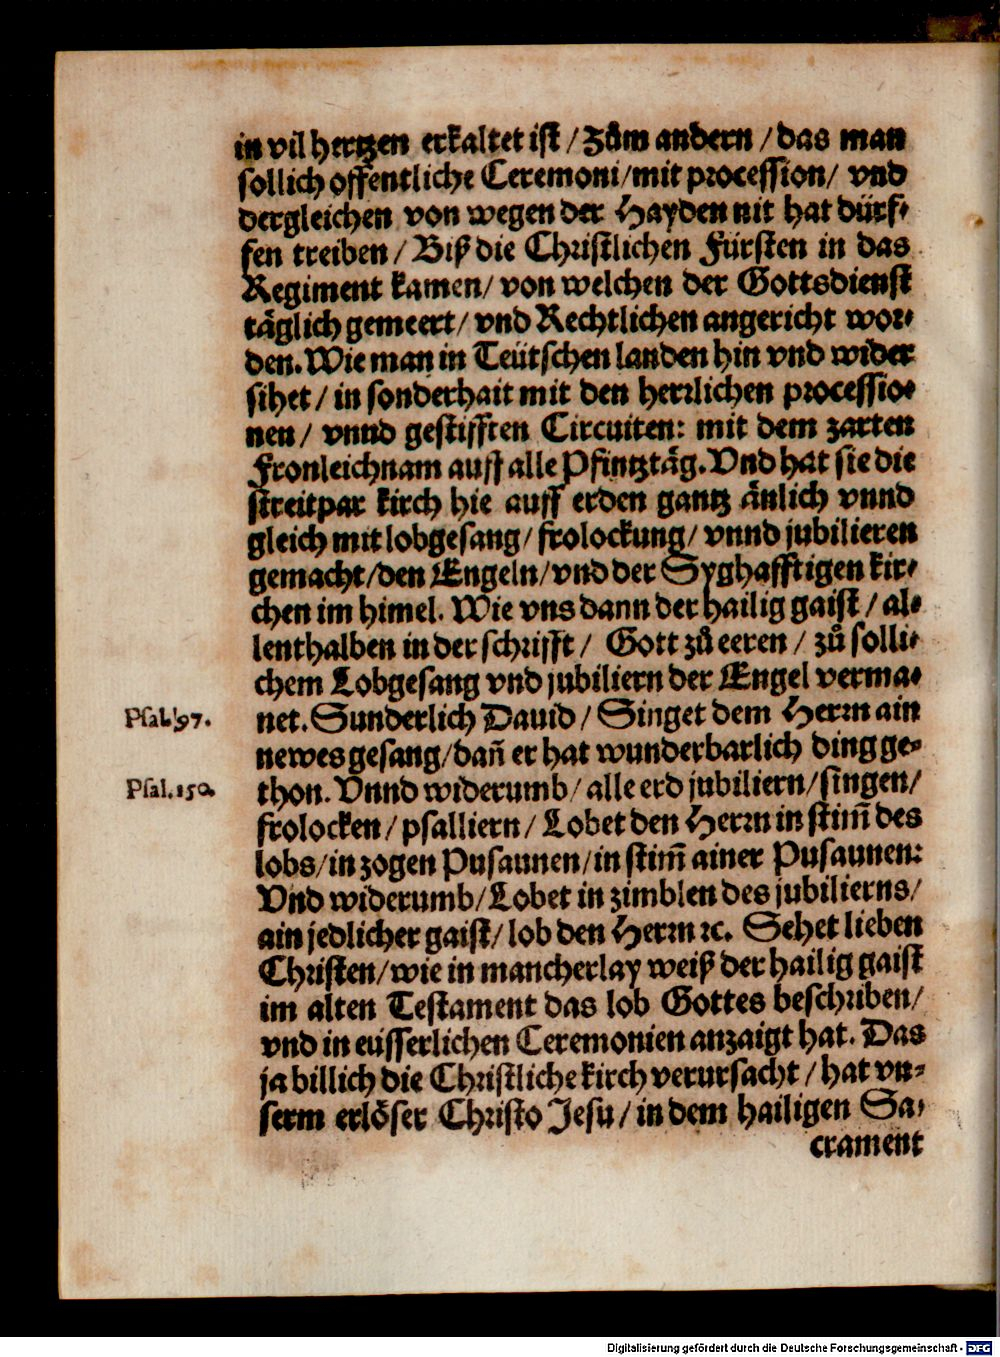 in vil hertzen erkaltet ist / Zům andern / das man
sollich offentliche Ceremoni / mit procession / vnd
dergleichen von wegen der Hayden nit hat dürf-
fen treiben / Biß die Christlichen Fürsten in das
Regiment kamen / von welchen der Gottsdienst
täglich gemeert / vnd Rechtlichen angericht wor-
den. Wie man in Teütschen landen hin vnd wider
sihet / in sonderhait mit den herrlichen processio-
nen / vnnd gestifften Circuiten: mit dem zarten
Fronleichnam auff alle Pfintztäg. Vnd hat sie die
streitpar kirch hie auff erden gantz änlich vnnd
gleich mit lobgesang / frolockung / vnnd jubilieren
gemacht / den Engeln / vnd der Syghafftigen kir-
chen im himel. Wie vns dann der hailig gaist / al-
lenthalben in der schrifft / Gott zů eeren / zů solli-
chem Lobgesang vnd jubiliern der Engel verma-
Psal. 97. net. Sunderlich Dauid / Singet dem Herrn ain
newes gesang / dañ er hat wunderbarlich ding ge-
Psal. 150. thon. Vnnd widerumb / alle erd jubiliern / singen /
frolocken / psalliern / Lobet den Herrn in stim̃ des
lobs / in zogen Pusaunen / in stim̃ ainer Pusaunen:
Vnd widerumb / Lobet in zimblen des jubilierns /
ain jedlicher gaist / lob den Herrn ꝛc. Sehet lieben
Christen / wie in mancherlay weiß der hailig gaist
im alten Testament das lob Gottes beschriben /
vnd in eüsserlichen Ceremonien anzaigt hat. Das
ja billich die Christliche kirch verursacht / hat vn-
serm erlöser Christo Jesu / in dem hailigen Sa-
crament
Digitalisierung gefördert durch die Deutsche Forschungsgemeinschaft - DFG